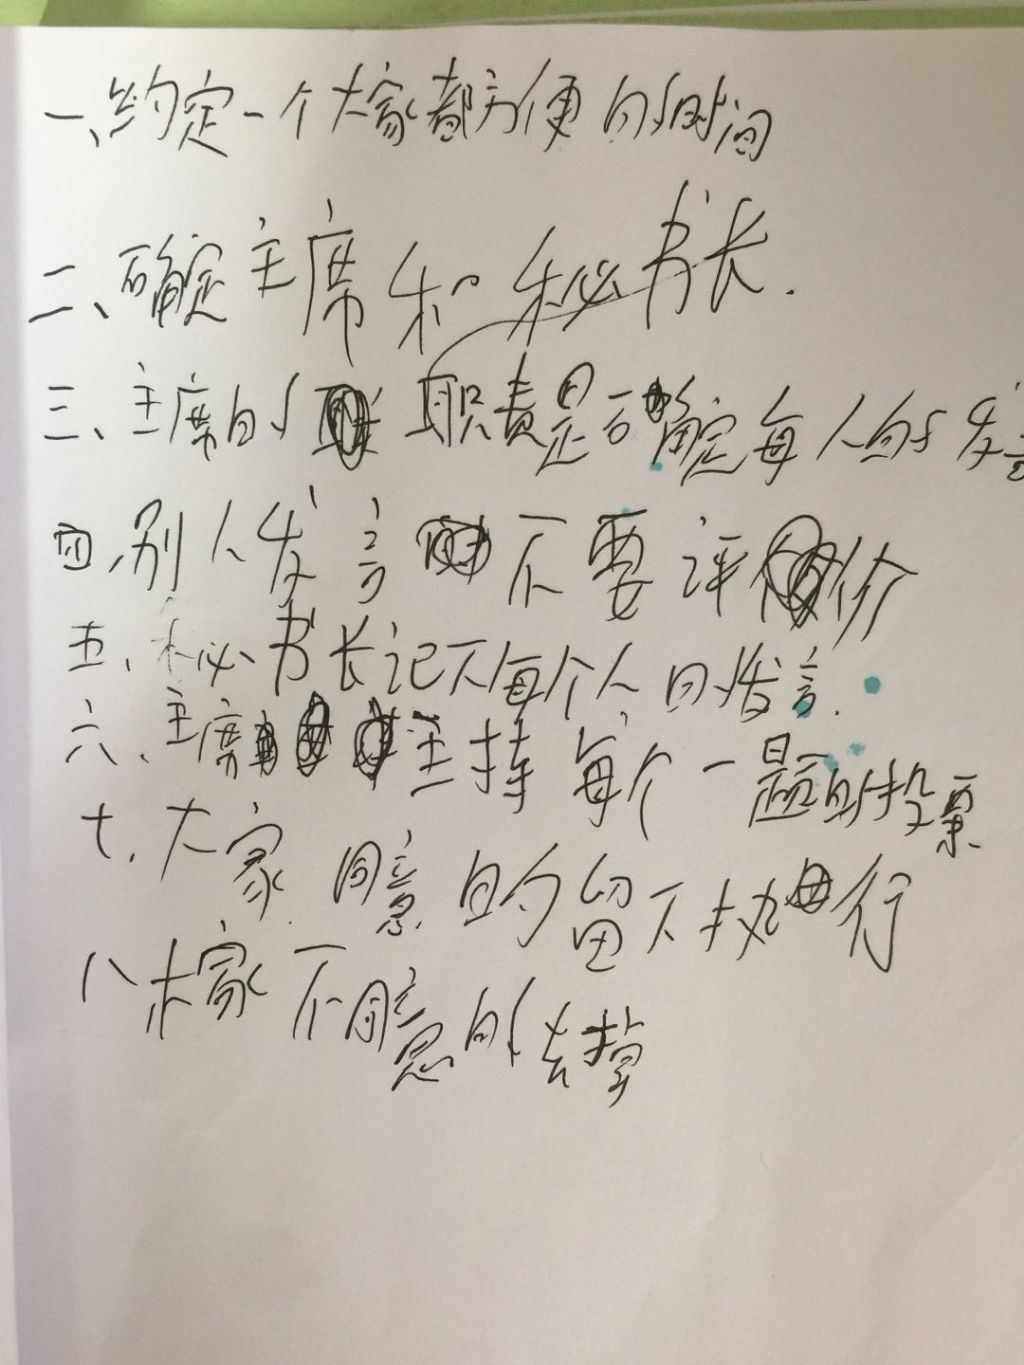 一、约定一个大家都方便的时间
二、确定主席和秘书长.
三、主席的职责是确定每人的发言
四、别人发言不要评价
五、秘书长记下每个人的发言.
六、主席主持每个一题的投票
七、大家同意的留下执行
八大家不同意的去掉